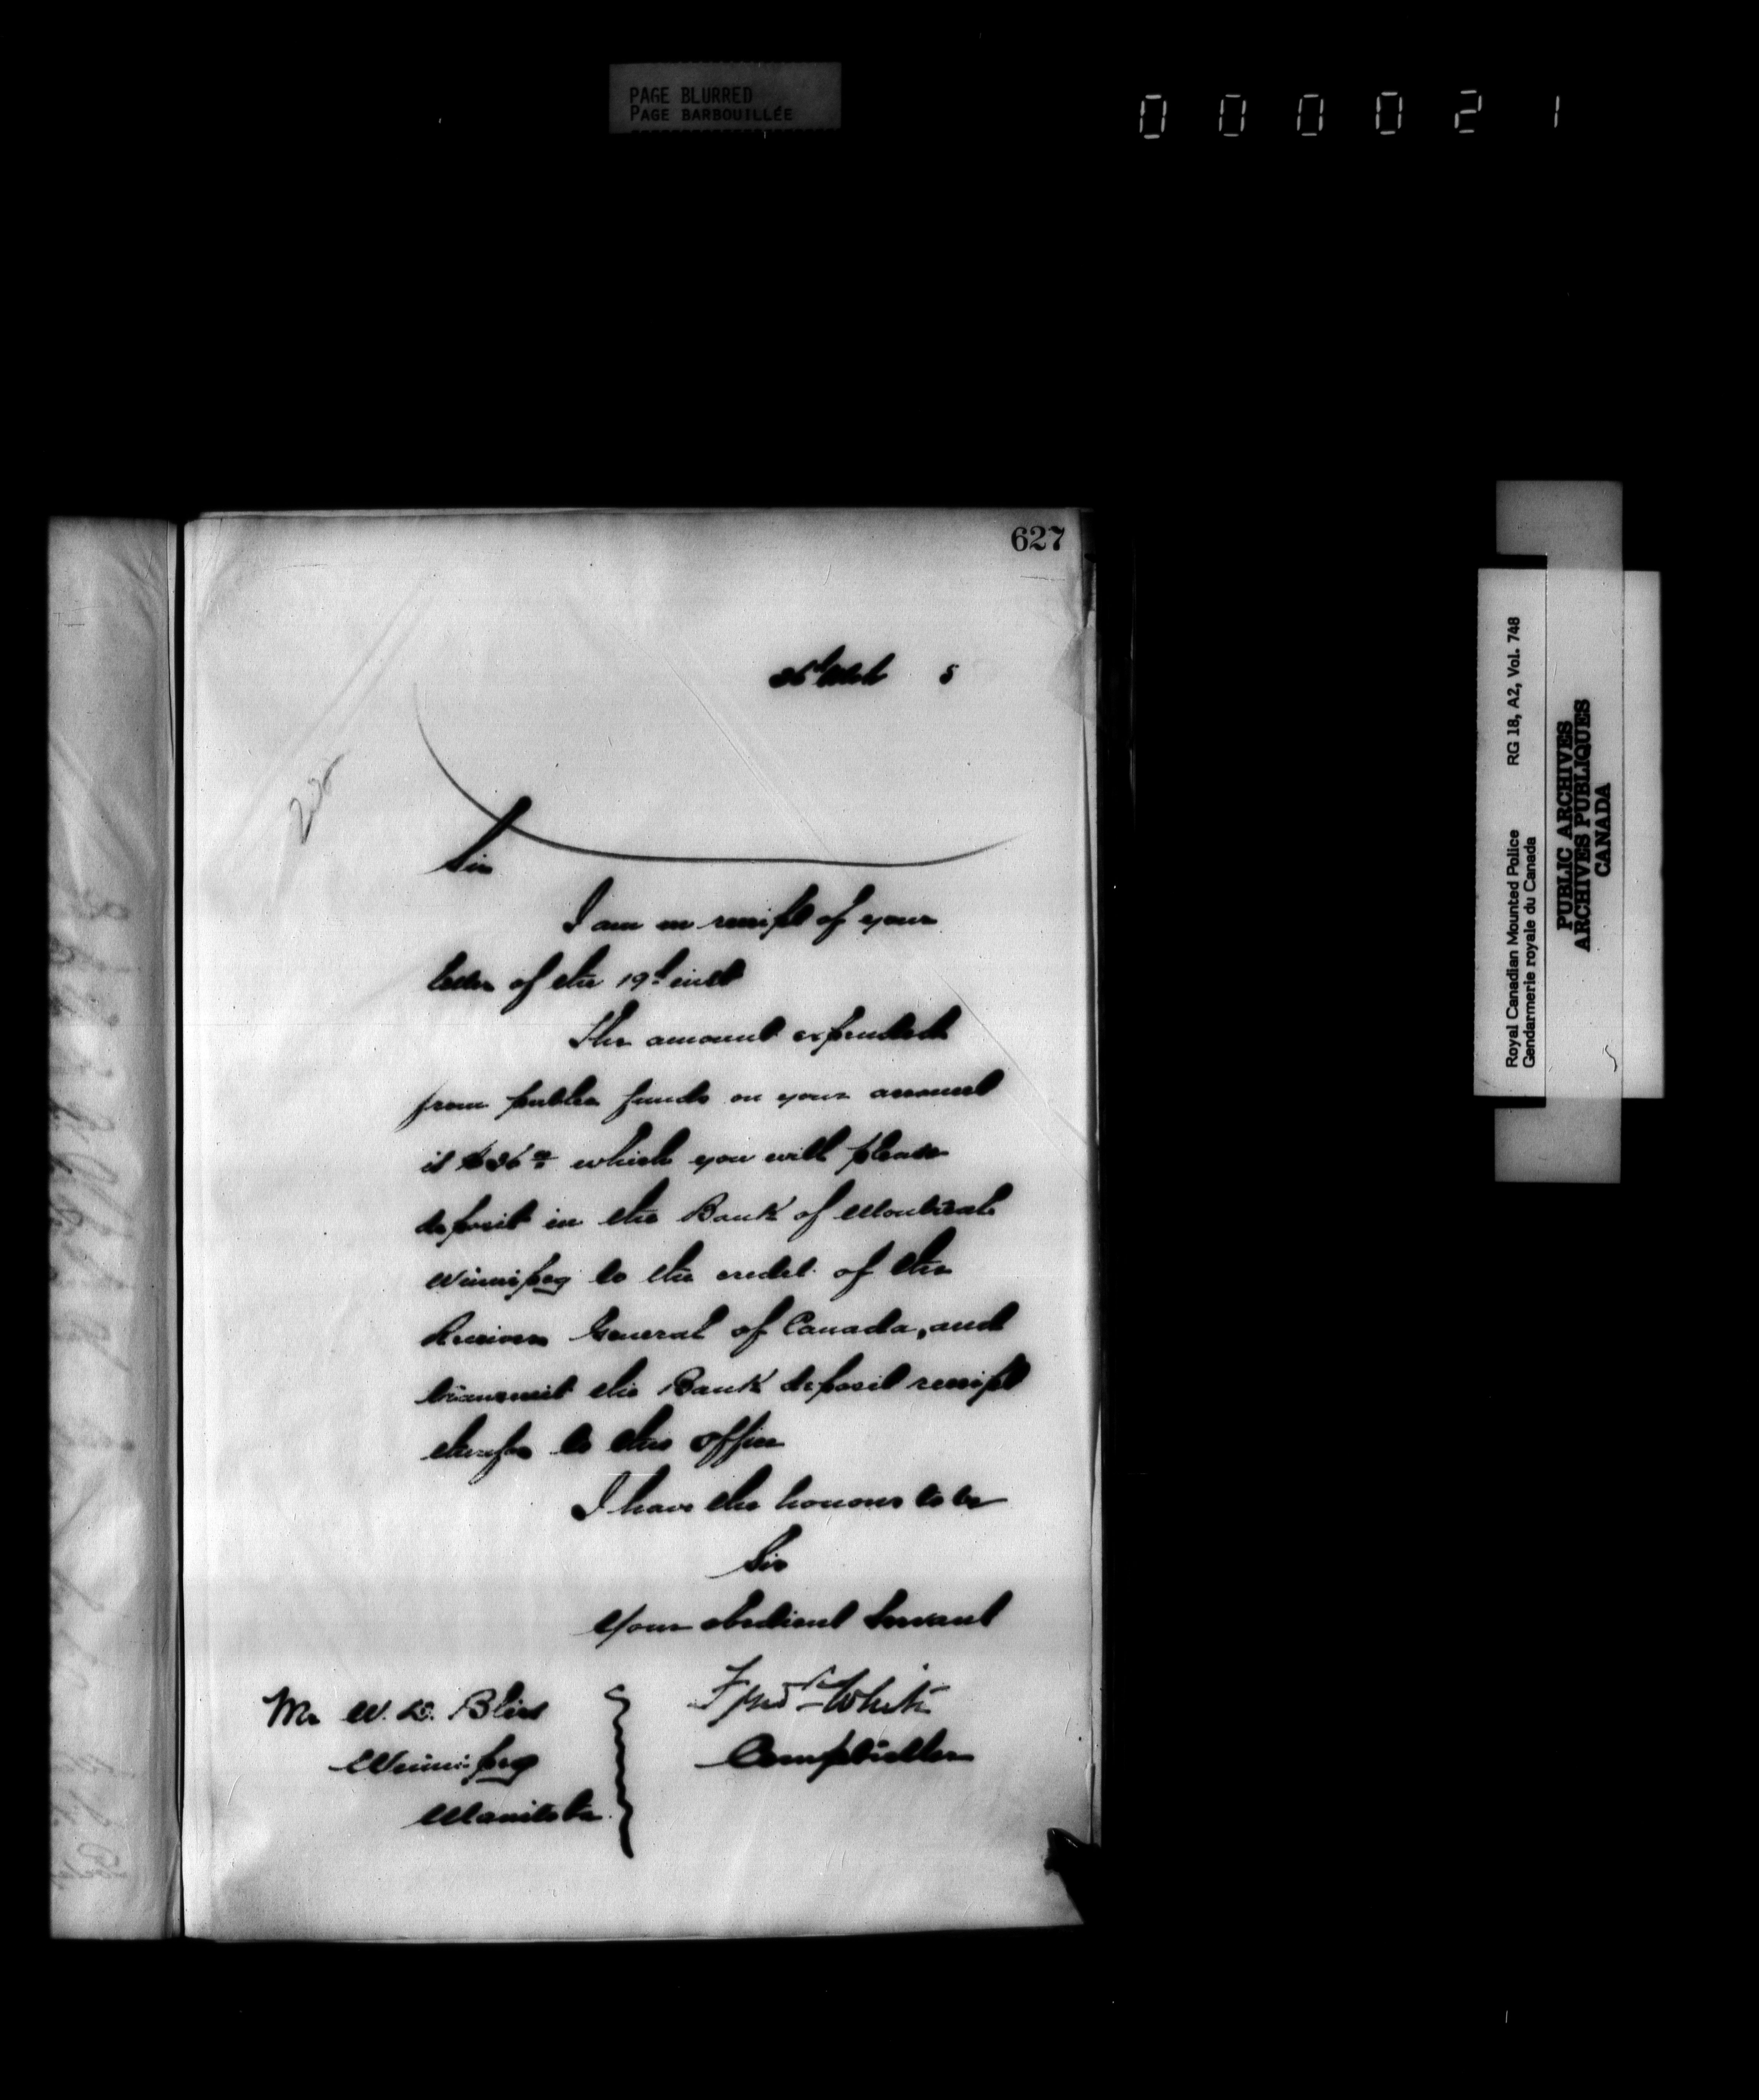 PAGE BLURRED
PAGE BARBOUILLÉE
0 0 0 0 2 1
627
5
Sir
I am in receipt of your
letter of the 19th inst
The amount expended
from public funds on your account
is which you will please
deposit in the Bank of Montreal
Winnipeg to the credit of the
Receiver General of Canada, and
transmit the Bank deposit receipt
therefor to this office
I have the honour to be
Sir
Your obedient Servant
Fred White
Comptroller
Mr W. D. Bliss
Winnipeg
Manitoba
Royal Canadian Mounted Police RG 18, A2, Vol. 748
Gendarmerie royale du Canada
PUBLIC ARCHIVES
ARCHIVES PUBLIQUES
CANADA